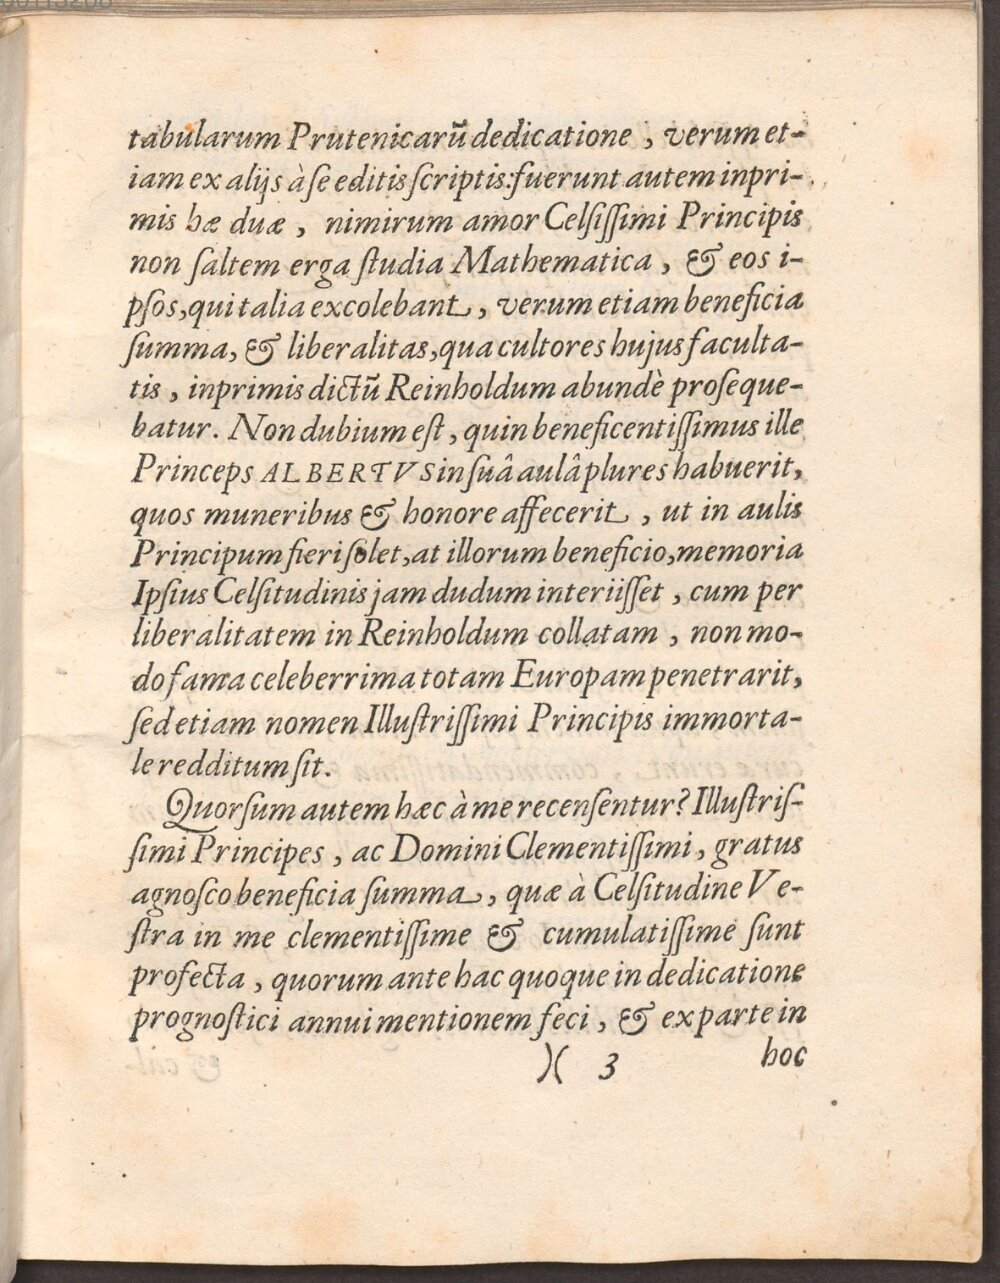 tabularum Prutenicarũ dedicatione, verum et-
iam ex alijs à se editis scriptis: fuerunt autem inpri-
mis hæ duæ, nimirum amor Celsissimi Principis
non saltem erga studia Mathematica, & eos i-
psos, qui talia excolebant, verum etiam beneficia
summa, & liberalitas, qua cultores hujus faculta-
tis, inprimis dictũ Reinholdum abundè proseque-
batur. Non dubium est, quin beneficentissimus ille
Princeps ALBERTVS in suâ aulâ plures habuerit,
quos muneribus & honore affecerit, ut in aulis
Principum fieri solet, at illorum beneficio, memoria
Ipsius Celsitudinis jam dudum interiisset, cum per
liberalitatem in Reinholdum collatam, non mo-
do fama celeberrima totam Europam penetrarit,
sed etiam nomen Illustrissimi Principis immorta-
le redditum sit.
Quorsum autem hæc à me recensentur? Illustris-
simi Principes, ac Domini Clementissimi, gratus
agnosco beneficia summa, quæ à Celsitudine Ve-
stra in me clementissime & cumulatissime sunt
profecta, quorum ante hac quoque in dedicatione
prognostici annui mentionem feci, & ex parte in
)( 3 hoc